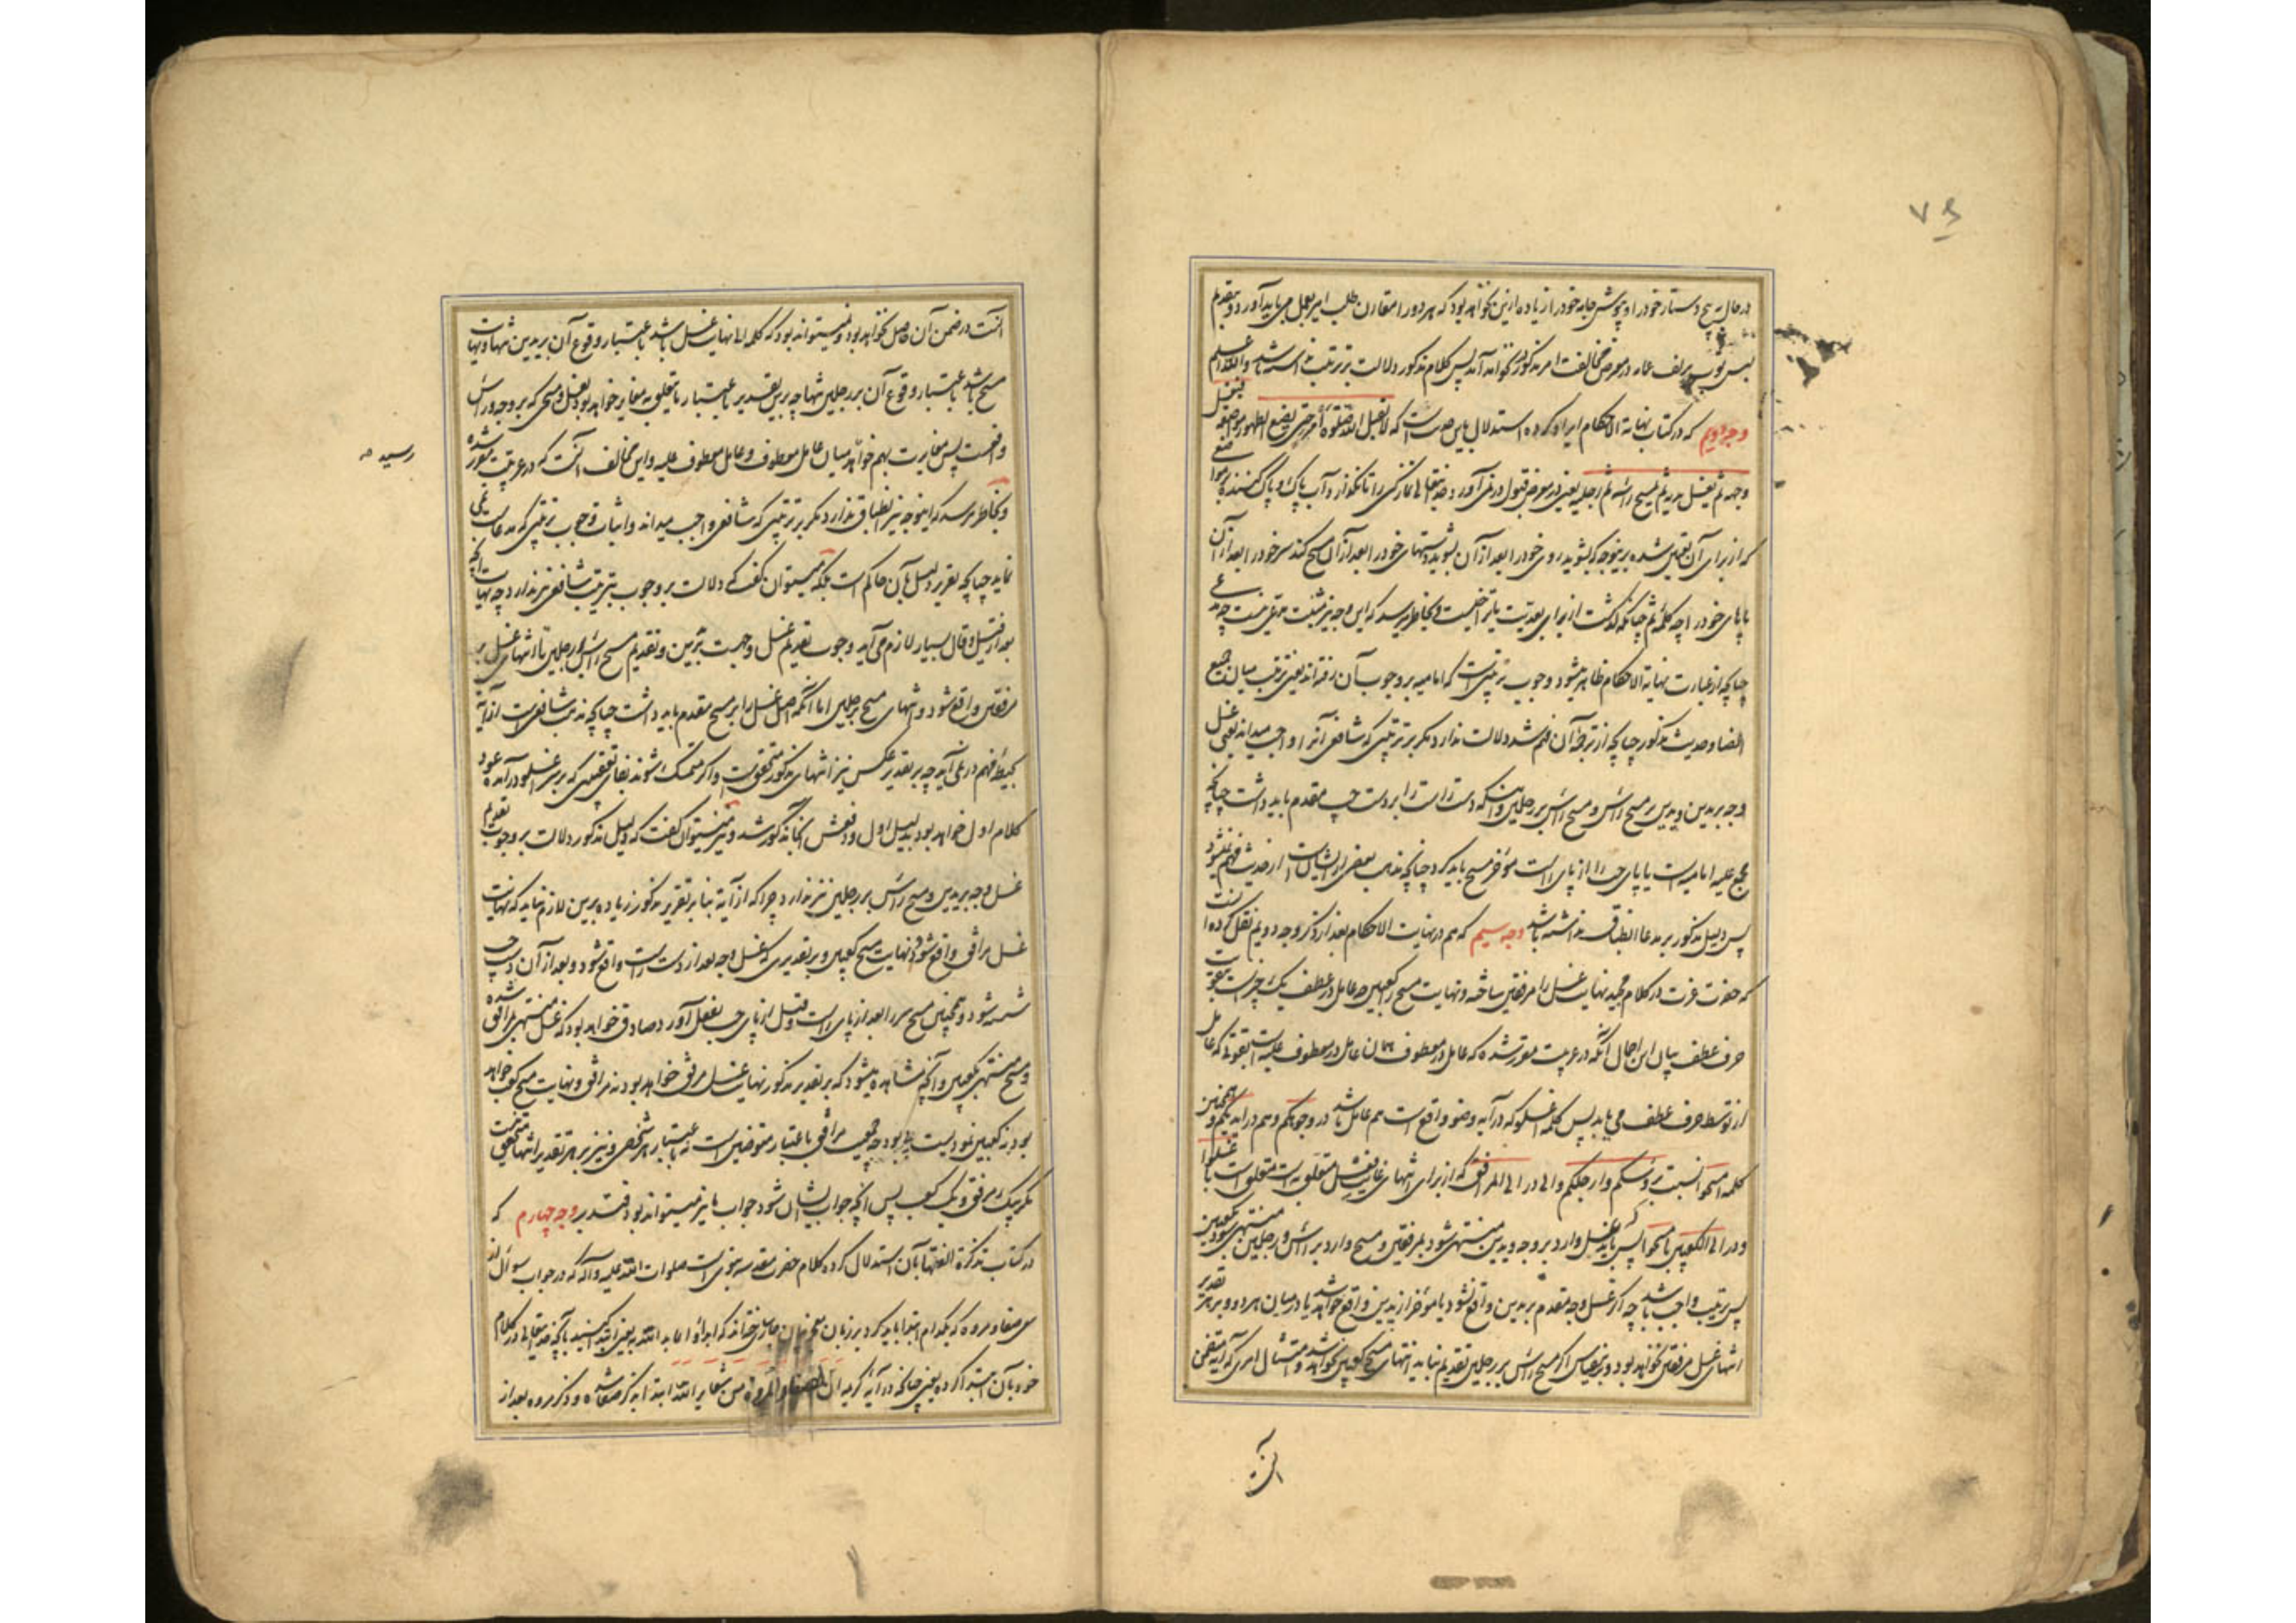 در حال پیچ دستار خود را و پوش جامه خود را زیاده ازین نخواهد بود که هر دو را مقارن طلب امیر بعمل می باید آورد و تقدیم
لبس ثوب بر لف عمامه در معرض مخالفت امر مذکور نخواند آمد پس کلام مذکور دلالت بر ترتیب نداشته باشد والله اعلم
وجه دویم که در کتاب نهایة الاحکام ایراد کرده استدلال باین حدیث است که لا یقبل الله صلوة امرء حتی یضع الطهور مواضعه فیغسل
وجهه ثم یغسل یدیه ثم یمسح راسه ثم رجلیه یعنی در معرض قبول در نمی آورد خدایتعالی نماز کسی را تا نگذارد آب پاک و پاک کننده را
که از برای آن تعیین شده برینوجه که بشوید روی خود را بعد از آن بشوید دستهای خود را بعد از آن مسح کند سر خود را بعد از آن
پاهای خود را چه کلمه ثم چنانکه گذشت از برای بعدیت با تراخیست و بخاطر میرسد که این وجه نیز مثبت مدعی نیست چه
چنانچه از عبارت نهایة الاحکام ظاهر میشود وجوب ترتیبی است که امامیه بر وجوب آن رفته اند یعنی ترتیب میان جمیع
اعضا و حدیث مذکور چنانچه از ترجمه آن فهم شد دلالت ندارد مگر بر ترتیبی که شافعی آنرا واجب میداند یعنی غسل
وجه بر یدین و یدین بر مسح راس و مسح راس بر رجلین و اینکه دست راست را بر دست چپ مقدم باید داشت چنانچه
مجمع علیه امامیه است یا پای چپ را از پای راست مؤخر مسح باید کرد چنانچه مذهب بعضی از ایشان است از حدیث فهم نمیشود
پس دلیل مذکور بر مدعا انطباق نداشته باشد وجه سیم که هم در نهایت الاحکام بعد از ذکر وجه دویم نقل کرده
که حضرت عزت در کلام مجید نهایت غسل را مرفقین ساخته و نهایت مسح را کعبین چه عامل در عطف یک چیز است بتقویت
حرف عطف بیان این اجمال آنکه در عربیت مقرر شده که عامل در معطوف همان عامل در معطوف علیه است بقوتی که عامل
از توسط حرف عطف می یابد پس کلمه اغسلوا که در آیه وضو واقع است هم عامل باشد در وجوهکم و هم در ایدیکم و همچنین
کلمه امسحوا نسبت برؤسکم و ارجلکم والی در الی المرافق که از برای انتهای غایت فعل متعلق به است متعلق است با اغسلوا
و در الی الکعبین با امسحوا پس باید که غسل وارد بر وجه و یدین منتهی شود بمرفقین و مسح وارد بر راس و رجلین منتهی شود بکعبین
پس ترتیب واجب باشد چه اگر غسل وجه مقدم بر یدین واقع نشود یا مؤخر از یدین واقع خواهد شد یا در میان هر دو و بر هر تقدیر
انتهای غسل مرفقین نخواهد بود و برین قیاس اگر مسح راس بر رجلین تقدیم نیابد انتهای مسح کعبین نخواهد شد و امتثال امری که آیه متضمن
آنست
آنست در ضمن آن حاصل نخواهد بود و نمیتواند بود که کلمه الی نهایت غسل باشد باعتبار وقوع آن بر یدین تنها و نهایت
مسح باشد باعتبار وقوع آن بر رجلین تنها چه برین تقدیر باعتبار تعلق به مغایر خواهد بود با غسل و مسحی که بر وجه و راس
واقعست پس مغایرت بهم خواهد رسید میان عامل معطوف و عامل معطوف علیه و این مخالف آنست که در عربیت مقرر شده
رسید
و بخاطر میرسد که اینوجه نیز انطباق ندارد مگر بر ترتیبی که شافعی واجب میداند و اثبات وجوب ترتیبی که مدعاست نمی
نماید چنانچه تقریر دلیل بآن حاکم است بلکه میتوان گفت که دلالت بر وجوب ترتیب شافعی نیز ندارد چه نهایت آنچه
بعد از قیل و قال بسیار لازم می آید وجوب تقدیم غسل وجه است بر یدین و تقدیم مسح راس بر رجلین تا انتهای غسل بر
مرفقین واقع شود و انتهای مسح بر رجلین اما آنکه اصل غسل را بر مسح مقدم باید داشت چنانچه مذهب شافعی است از آیه
بحیطه فهم در نمی آید چه بر تقدیر عکس نیز انتهای مذکور متحقق است و اگر متمسک شوند بفای تعقیبی که بر سر اغسلوا درآمده عود
کلام اول خواهد بود بدلیل اول و دفعش آنجا مذکور شد و نیز میتوان گفت که دلیل مذکور دلالت بر وجوب تقدیم
غسل وجه بر یدین و مسح راس بر رجلین نیز ندارد چرا که از آیه بنا بر تقریر مذکور زیاده برین لازم نیاید که نهایت
غسل مرافق واقع شود و نهایت مسح کعبین و بر تقدیری که غسل وجه بعد از دست راست واقع شود و بعد از آن دست چپ
شسته شود و همچنین مسح سر را بعد از پای راست و قبل از پای چپ بفعل آورد صادق خواهد بود که غسل منتهی بمرافق شده
و مسح منتهی بکعبین و آنچه مشاهده میشود که بر تقدیر مذکور نهایت غسل مرفق خواهد بود نه مرافق و نهایت مسح کعب خواهد
بود نه کعبین نمودیست بی بود چه جمعیت مرافق باعتبار متوضین است نه باعتبار هر شخص و نیز بر هر تقدیر انتها متحقق نیست
مگر بیک مرفق و یک کعب پس آنچه جواب ایشان شود جواب ما نیز میتواند بود فتدبر وجه چهارم که
در کتاب تذکرة الفقها بآن استدلال کرده کلام حضرت مقدسه نبوی است صلوات الله علیه و آله که در جواب سؤال از
سعی صفا و مروه که بکدام ابتدا باید کرد بر زبان معجز بیان جاری ساخته اند که ابدأوا بما بدأ الله به یعنی ابتدا کنید بآنچه خدایتعالی در کلام
خود بآن ابتدا کرده یعنی چنانکه در آیه کریمه ان الصفا والمروة من شعایر الله ابتدا بذکر صفا شده و ذکر مروه بعد از